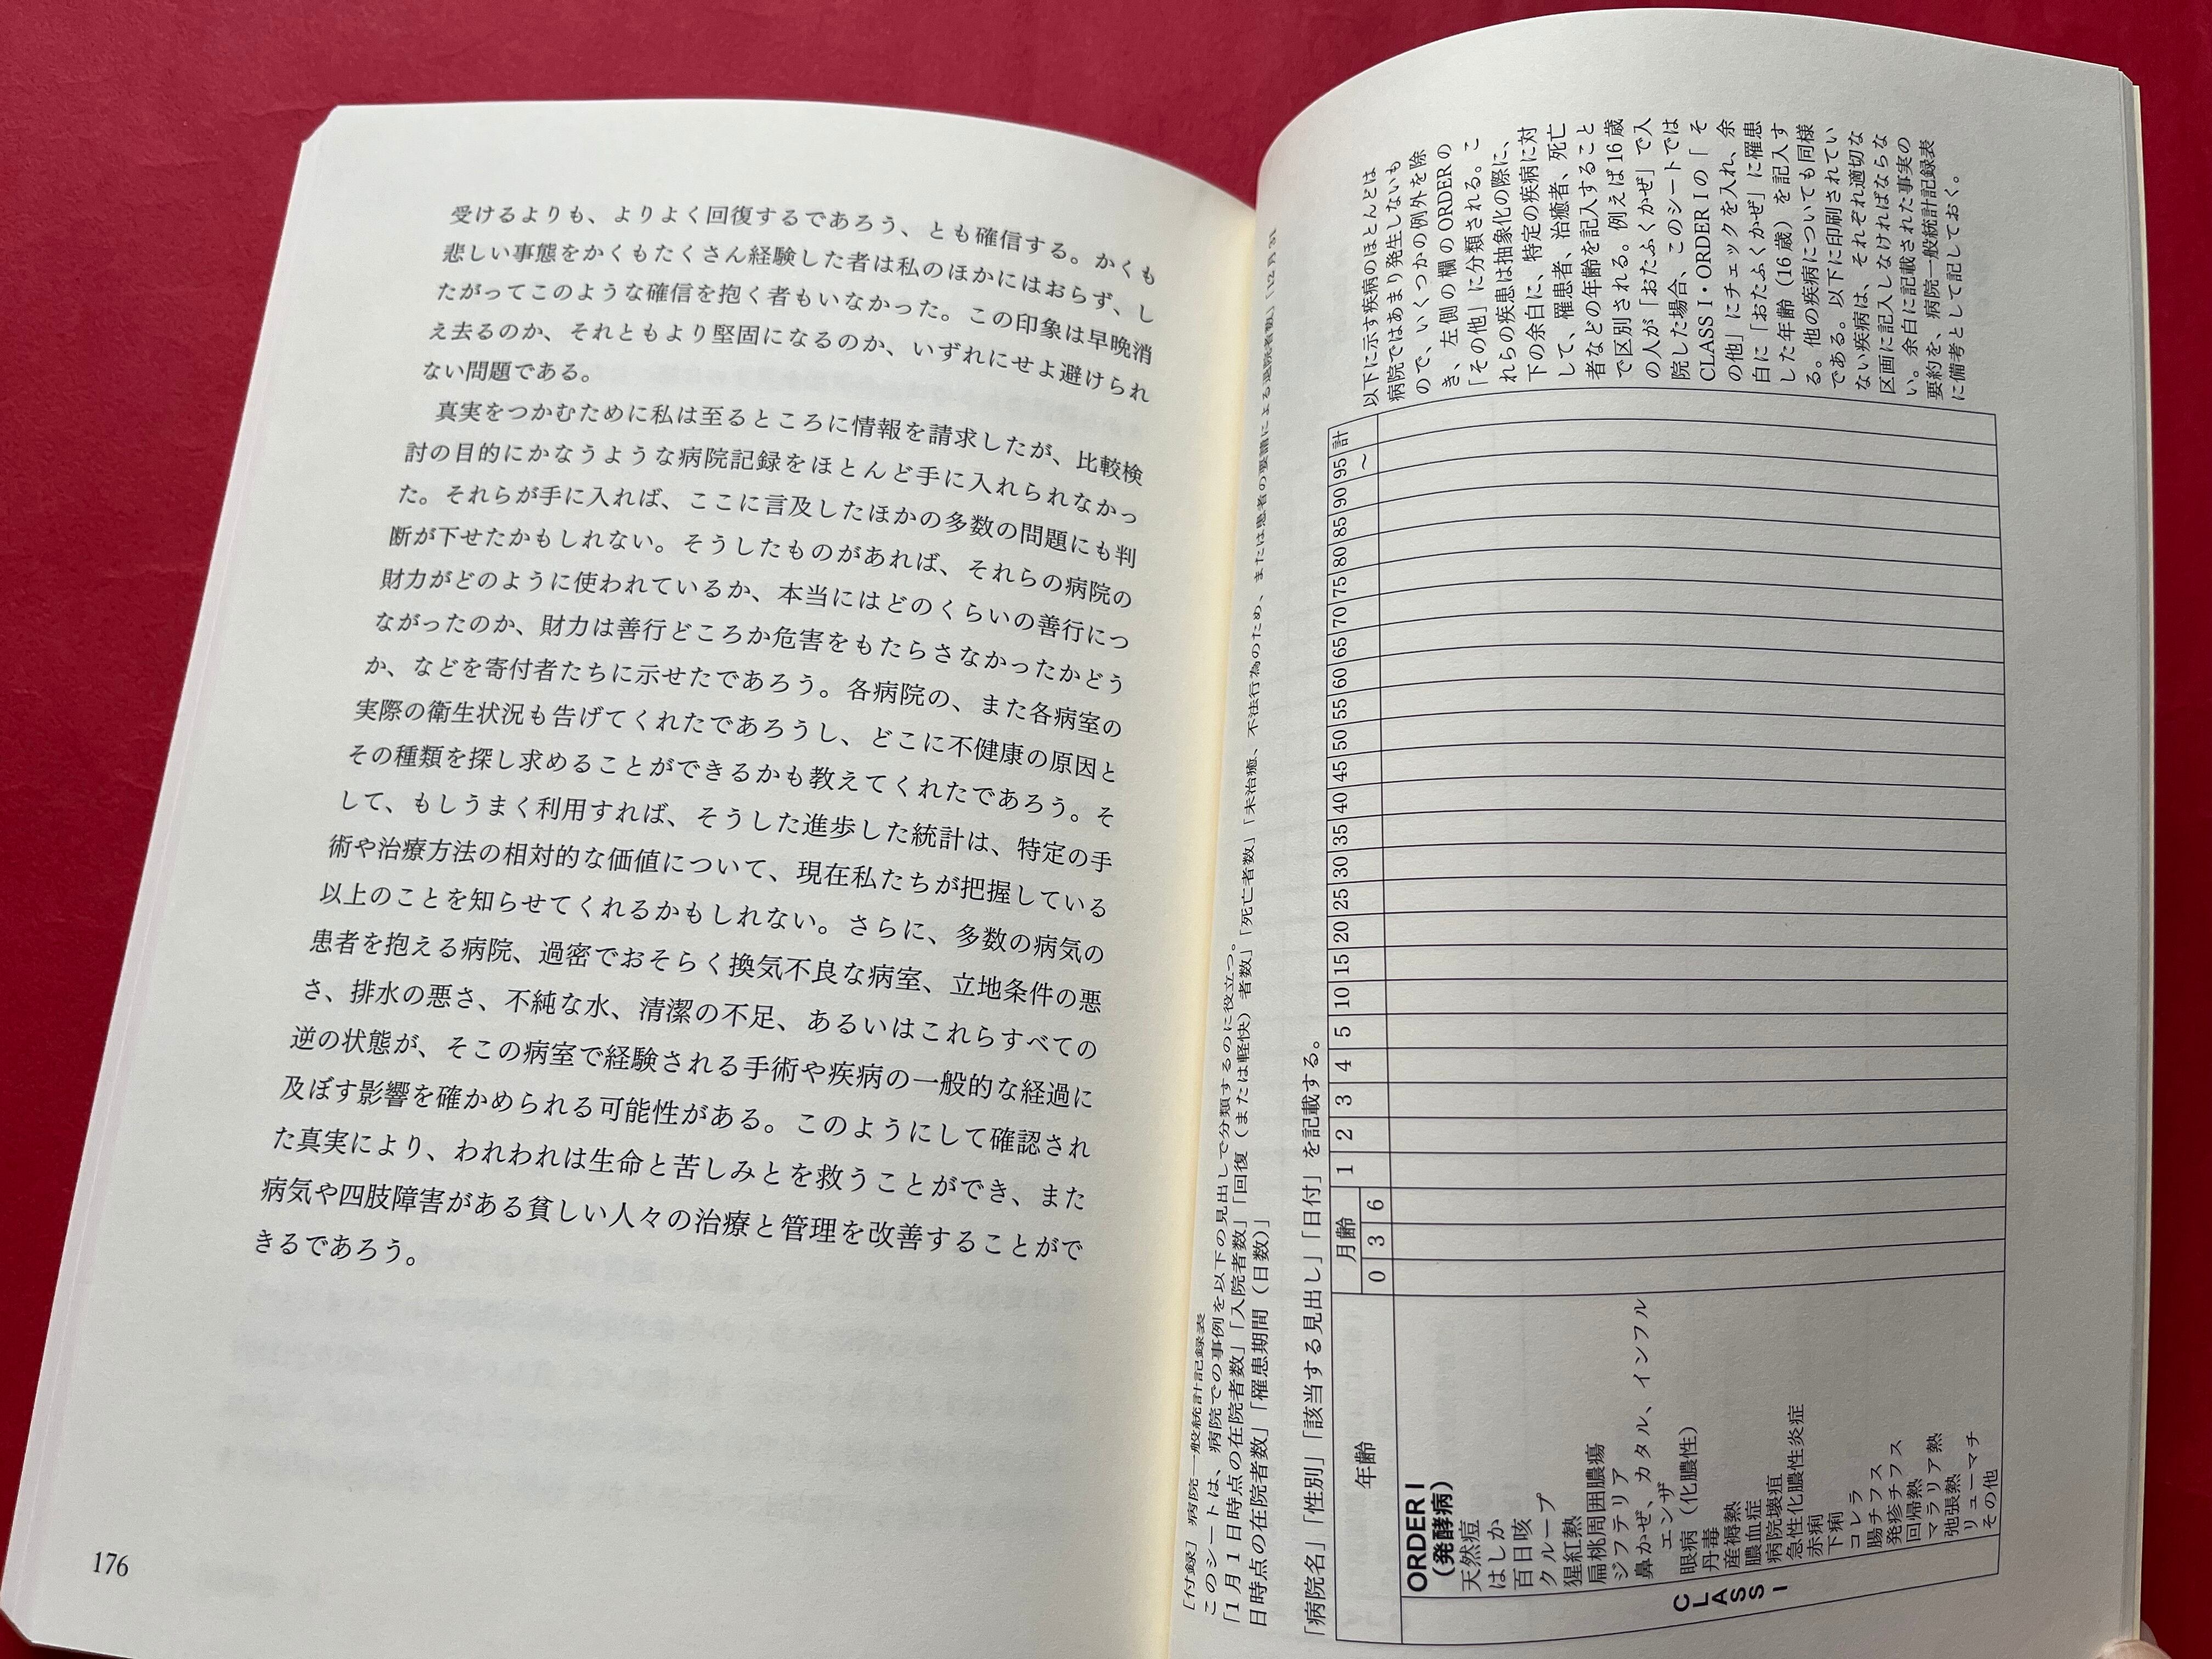 受けるよりも、よりよく回復するであろう、とも確信する。かくも
悲しい事態をかくもたくさん経験した者は私のほかにはおらず、し
たがってこのような確信を抱く者もいなかった。この印象は早晩消
え去るのか、それともより堅固になるのか、いずれにせよ避けられ
ない問題である。
真実をつかむために私は至るところに情報を請求したが、比較検
討の目的にかなうような病院記録をほとんど手に入れられなかっ
た。それらが手に入れば、ここに言及したほかの多数の問題にも判
断が下せたかもしれない。そうしたものがあれば、それらの病院の
財力がどのように使われているか、本当にはどのくらいの善行につ
ながったのか、財力は善行どころか危害をもたらさなかったかどう
か、などを寄付者たちに示せたであろう。各病院の、また各病室の
実際の衛生状況も告げてくれたであろうし、どこに不健康の原因と
その種類を探し求めることができるかも教えてくれたであろう。そ
して、もしうまく利用すれば、そうした進歩した統計は、特定の手
術や治療方法の相対的な価値について、現在私たちが把握している
以上のことを知らせてくれるかもしれない。さらに、多数の病気の
患者を抱える病院、過密でおそらく換気不良な病室、立地条件の悪
さ、排水の悪さ、不純な水、清潔の不足、あるいはこれらすべての
逆の状態が、そこの病室で経験される手術や疾病の一般的な経過に
及ぼす影響を確かめられる可能性がある。このようにして確認され
た真実により、われわれは生命と苦しみとを救うことができ、また
病気や四肢障害がある貧しい人々の治療と管理を改善することがで
きるであろう。
176
［付録］ 病院一般統計記録表
このシートは、病院での事例を以下の見出しで分類するのに役立つ。
「1月1日時点の在院者数」「入院者数」「回復（または軽快）者数」「死亡者数」「未治癒、不法行為のため、または患者の要請による退院者数」「12月31
日時点の在院者数」「罹患期間（日数）」
「病院名」「性別」「該当する見出し」「日付」を記載する。
年齢
月齢
0 3 6
1 2 3 4 5 10 15 20 25 30 35 40 45 50 55 60 65 70 75 80 85 90 95 計
〜
CLASS I
ORDER I
（発酵病）
天然痘
はしか
百日咳
クループ
猩紅熱
扁桃周囲膿瘍
ジフテリア
鼻かぜ、カタル、インフル
エンザ
眼病（化膿性）
丹毒
産褥熱
膿血症
病院壊疽
急性化膿性炎症
赤痢
下痢
コレラ
腸チフス
発疹チフス
回帰熱
マラリア熱
弛張熱
リューマチ
その他
以下に示す疾病のほとんどは
病院ではあまり発生しないも
ので、いくつかの例外を除
き、左側の欄のORDERの
「その他」に分類される。こ
れらの疾患は抽象化の際に、
下の余白に、特定の疾病に対
して、罹患者、治癒者、死亡
者などの年齢を記入すること
で区別される。例えば16歳
の人が「おたふくかぜ」で入
院した場合、このシートでは
CLASS I・ORDER Iの「そ
の他」にチェックを入れ、余
白に「おたふくかぜ」に罹患
した年齢（16歳）を記入す
る。他の疾病についても同様
である。以下に印刷されてい
ない疾病は、それぞれ適切な
区画に記入しなければならな
い。余白に記載された事実の
要約を、病院一般統計記録表
に備考として記しておく。